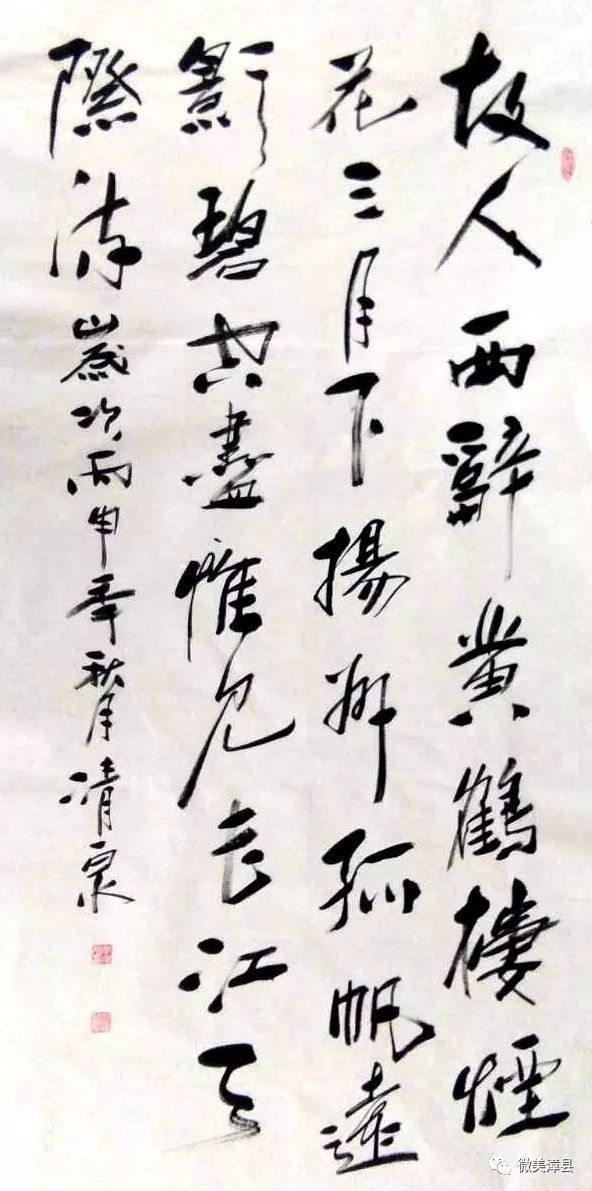 故人西辭黄鶴樓煙
花三月下揚州孤帆遠
影碧空盡惟見長江天
際流歲次丙申年秋月清泉
微美漳县